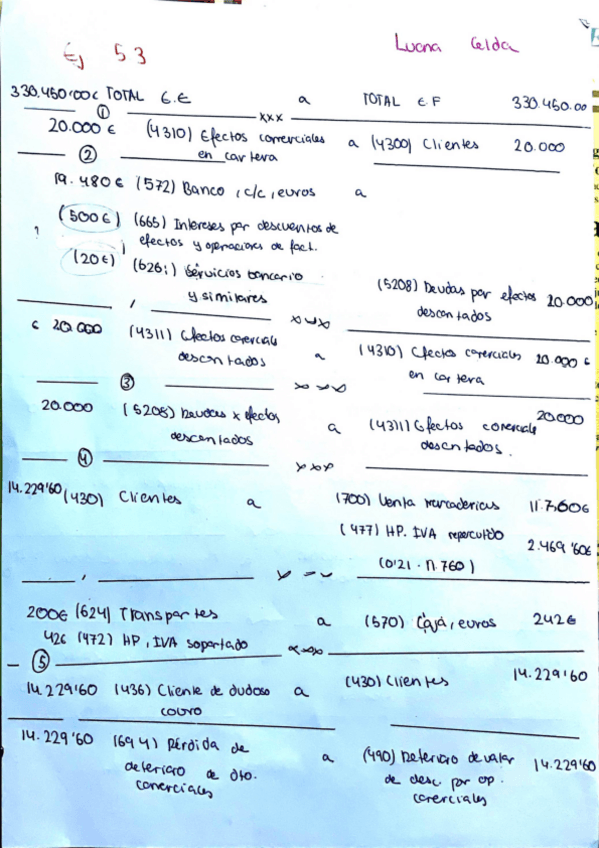 Ej 53
Luana Celda
330.460'00€ TOTAL G.E a TOTAL E.F 330.460.00
① xxx
20.000 € (4310) Efectos comerciales a (4300) Clientes 20.000
en cartera
②
19.480€ (572) Banco, c/c, euros a
? (500€) (665) Intereses por descuentos de
efectos y operaciones de fact.
(20€) (626) Servicios bancario
y similares
(5208) Deudas por efectos 20.000
descontados
xxx
€ 20.000 (4311) Efectos comerciales a (4310) Efectos comerciales 20.000 €
descontados en cartera
③ xxx
20.000 (5208) Deudas x efectos a (4311) Efectos comerciale 20.000
descontados descontados.
④ xxx
14.229'60 (430) Clientes a (700) Venta mercaderias 11.760€
(477) HP. IVA repercutido 2.469'60€
(0'21 · 11.760)
200€ (624) Transportes a (570) Caja, euros 242€
42€ (472) HP, IVA soportado
⑤ xxx
14.229'60 (436) Cliente de dudoso a (430) Clientes 14.229'60
cobro
14.229'60 (694) Pérdida de a (490) Deterioro de valor 14.229'60
deterioro de dto. de desc. por op.
comerciales comerciales